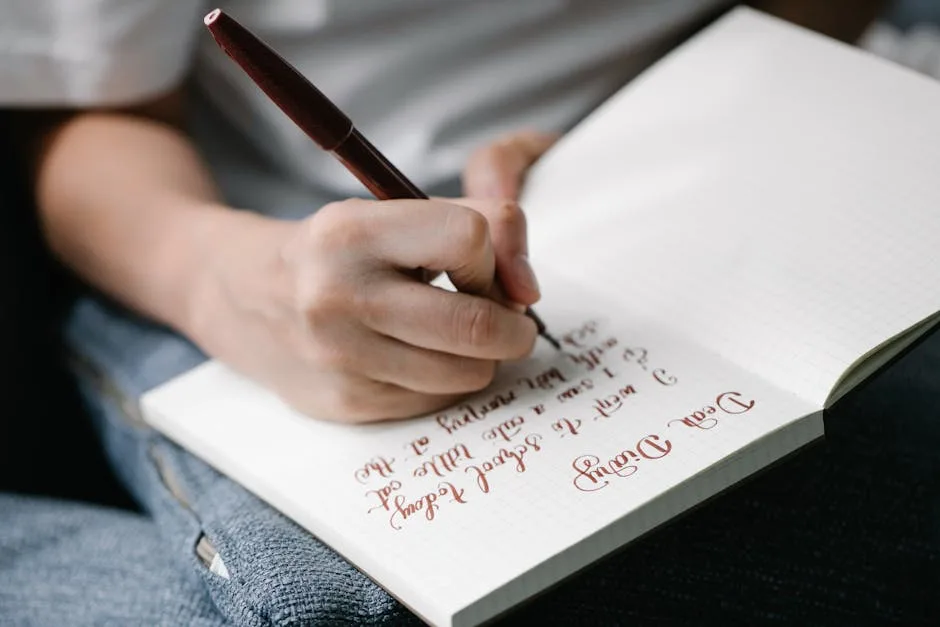 Dear Diary
I went to school today
& I saw a cute little cat
him at the
sch